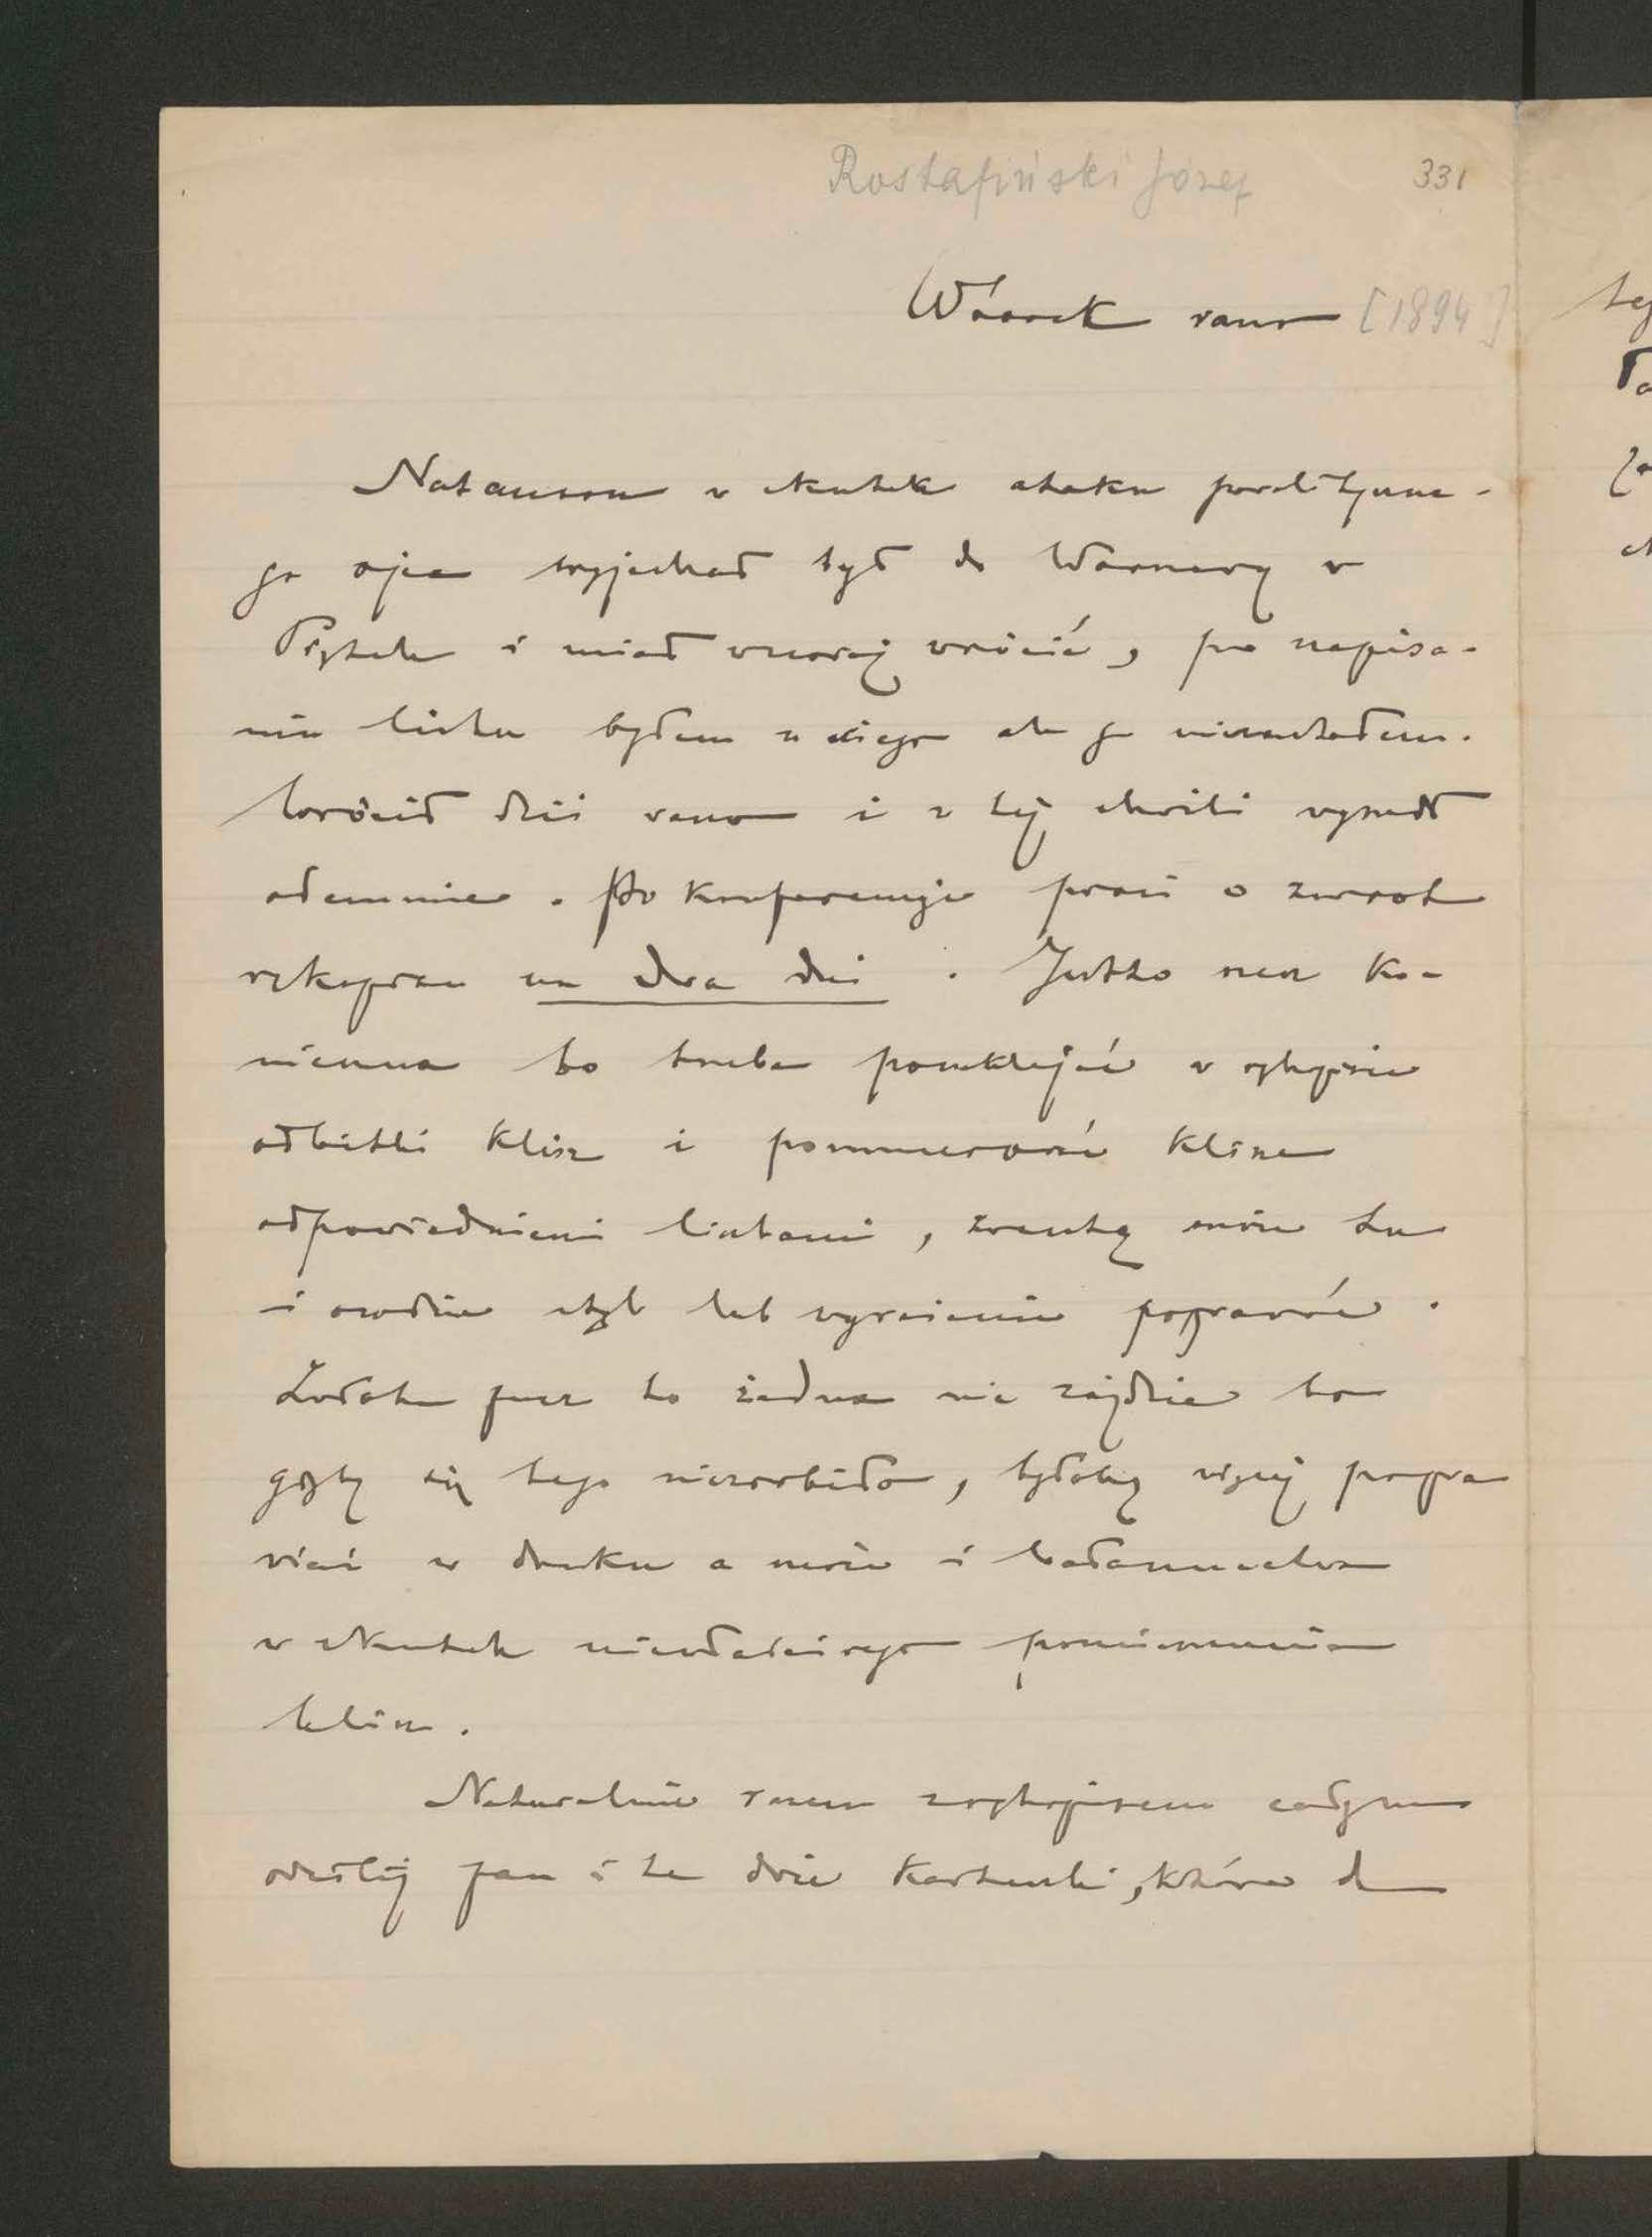 Rostafiński Józef 331
Wtorek rano [1894]
Natanson w skutek ataku paralityczne-
go ojca wyjechał był do Warszawy w
Piątek i miał wczoraj wrócić, po napisa-
niu listu byłem u niego ale go niezastałem.
Wrócił dziś rano i w tej chwili wyszedł
odemnie. Po konferencyi prosi o zwrot
rękopisu na dwa dni. Jest to rzecz ko-
nieczna bo trzeba powklejać w rękopisie
odbitki klisz i ponumerować klisze
odpowiedniemi liczbami, zresztą może tu
i owdzie styl lub wyrażenie poprawić.
Zwłoka przez to żadna nie zajdzie bo
gdyby się tego niezrobiło, byłoby więcej popra
wiać w druku a może i bałamuctwa
w skutek niewłaściwego pomieszczenia
klisz.
Naturalnie razem z rękopisem całym
odeślij pan i te dwie karteczki, które do
te